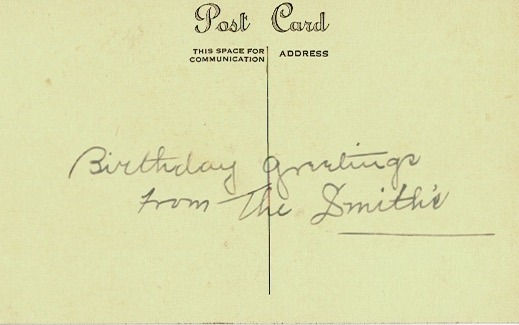 Post Card
THIS SPACE FOR
COMMUNICATION
ADDRESS
Birthday Greetings
from The Smith's